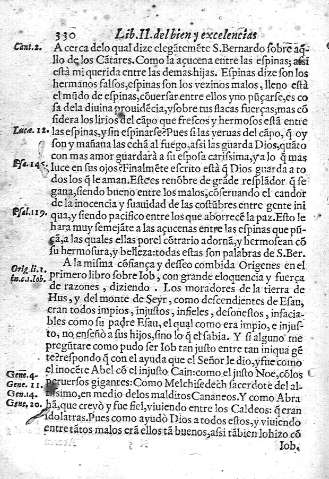 330 Lib.II. del bien y excelencias
Cant.2. A cerca de lo qual dize elegãtemẽte S. Bernardo sobre aq̃-
llo de los Cãtares. Como la açucena entre las espinas; assi
està mi querida entre las demas hijas. Espinas dize son los
hermanos falsos, espinas son los vezinos malos, lleno està
el mũdo de espinas, cõuersar entre ellos y no pũçarse, es co
sa de la diuina prouidẽcia, y sobre tus flacas fuerças; mas cõ
sidera los lirios del cãpo que frescos y hermosos està entre
Lucæ. 12. las espinas, y sin espinarse? Pues si las yeruas del cãpo, q̃ oy
son y mañana las echã al fuego, assi las guarda Dios, quãto
con mas amor guardarà a su esposa carissima, y a lo q̃ mas
Psa.145. luce en sus ojos? Finalmẽte escrito està q̃ Dios guarda a to
dos los q̃ le aman. Este es renõbre de grãde resplãdor q̃ se
gana, siendo bueno entre los malos, cõseruando el candor
de la inocencia y suauidad de las costũbres entre gente ini
Psal.119. qua, y siendo pacifico entre los que aborrecẽ la paz. Esto le
hara muy semejate a las açucenas entre las espinas que pũ-
çã, a las quales ellas por el cõtrario adornã, y hermosean cõ
su hermosura, y belleza: todas estas son palabras de S. Ber.
A la misma cõfiança y desseo combida Origenes en el
Orig li.1. primero libro sobre Iob, con grande eloquencia y fuerça
in.c.1.Iob. de razones, diziendo. Los moradores de la tierra de
Hus, y del monte de Seyr, como descendientes de Esau,
eran todos impios, injustos, infieles, desonestos, insacia-
bles como su padre Esau, el qual como era impio, e injus-
to, no enseñò a sus hijos, sino lo q̃ el sabia. Y si alguno me
pregũtare como pudo ser Iob tan justo entre tan iniqua gẽ
te? respondo q̃ con el ayuda que el Señor le dio, y fue como
Gene.4. el inocẽte Abel cõ el injusto Cain: como el justo Noe, cõ los
Gene. 11. peruersos gigantes: Como Melchisedech sacerdote del al-
Gen.14. tissimo, en medio de los malditos Cananeos. Y como Abra
Gene. 20. hã, que creyò y fue fiel, viuiendo entre los Caldeos q̃ eran
idolatras. Pues como ayudò Dios a todos estos, y viuiendo
entre tãtos malos erã ellos tã buenos, assi tãbien lo hizo cõ
Iob,